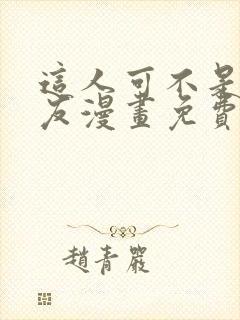 這人可不是
友漫畫免費
趙青嚴